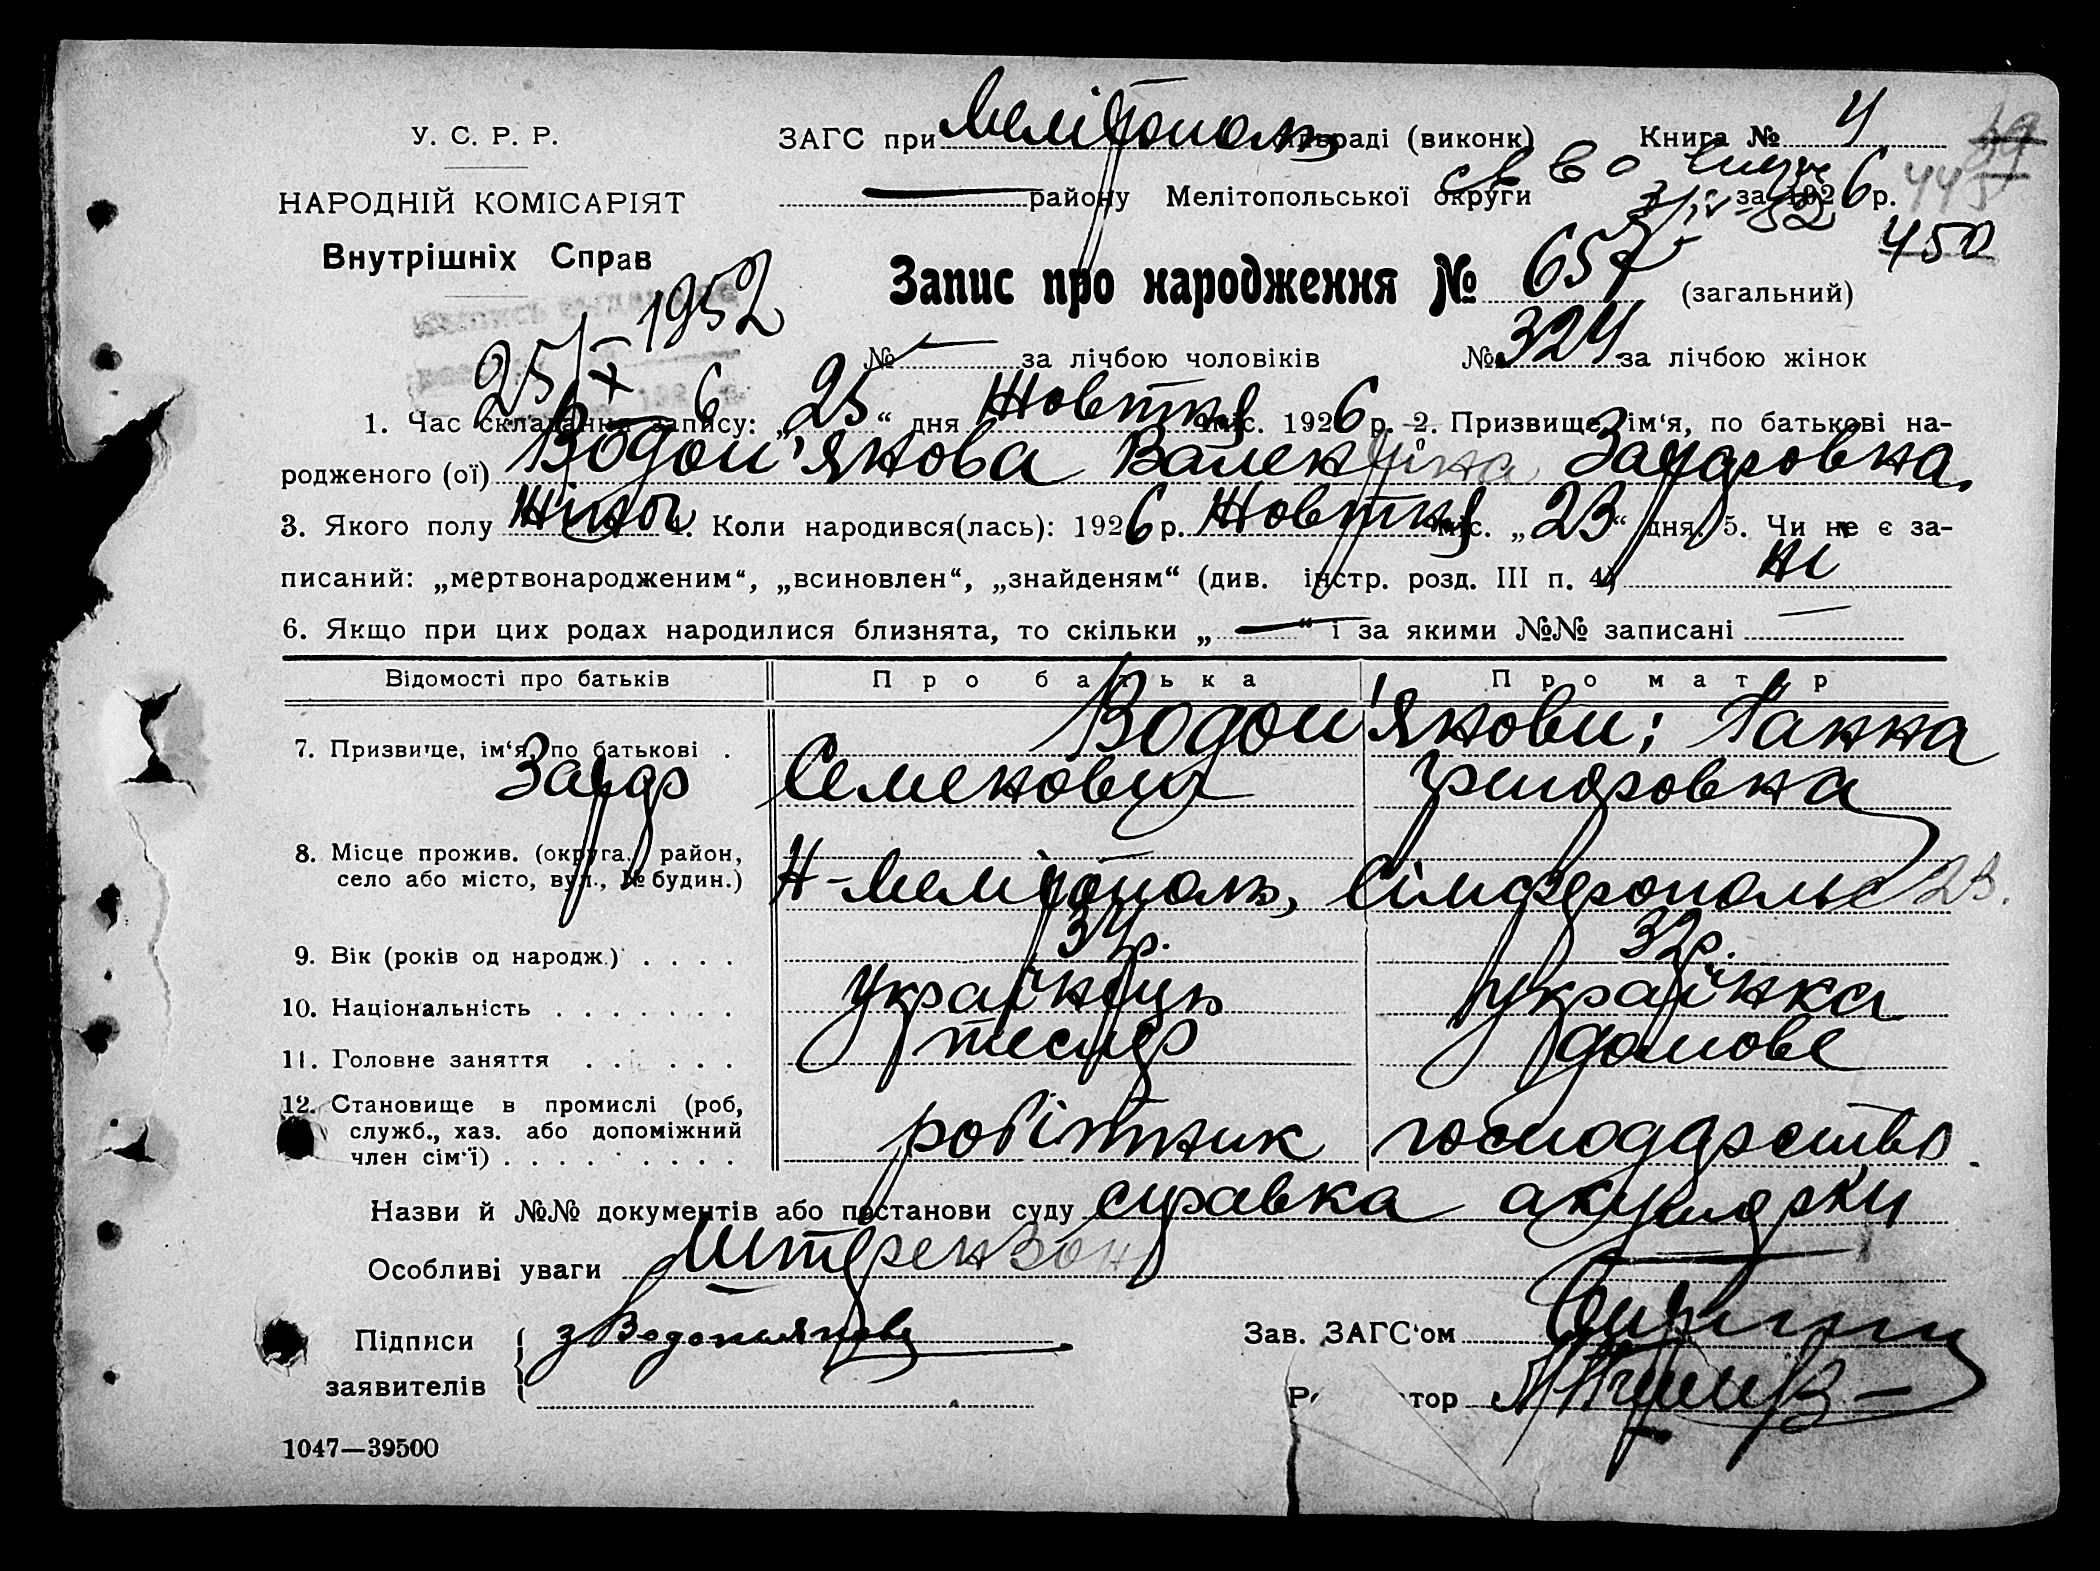 У. С. Р. Р.
НАРОДНІЙ КОМІСАРІЯТ
Внутрішніх Справ
ЗАГС при Мелітополь міськраді (виконк) Книга № 4
— району Мелітопольської округи за 1926 р.
445
450
Запис про народження № 657 (загальний)
25/X 1952
№ — за лічбою чоловіків № 324 за лічбою жінок
1. Час складання запису: „25“ дня Жовтня міс. 1926 р. 2. Призвище, ім‘я, по батькові на-
родженого (ої) Водоп'янова Валентіна Захаровна.
3. Якого полу жіноч 4. Коли народився(лась): 1926 р. Жовтня міс. „23“ дня. 5. Чи не є за-
писаний: „мертвонародженим“, „всиновлен“, „знайденям“ (див. інстр. розд. III п. 4) ні
6. Якщо при цих родах народилися близнята, то скільки „—“ і за якими №№ записані —
Відомості про батьків Про батька Про матір
7. Призвище, ім‘я, по батькові . Водоп'янови: Ганна
Захар Семенович Григоровна
8. Місце прожив. (округа, район,
село або місто, вул., № будин.) Н-Мелітополь, Сімферопольс 23.
9. Вік (років од народж.) . . . . 34 р. 32 р.
10. Національність . . . . . . . українець українка
11. Головне заняття . . . . . . тесляр домове
12. Становище в промислі (роб,
служб., хаз. або допоміжний
член сім‘ї) . . . . . . . . . робітник господарство.
Назви й №№ документів або постанови суду справка акушерки
Особливі уваги Штерензон
Підписи
заявителів З Водопьянов
Зав. ЗАГС‘ом
1047—39500